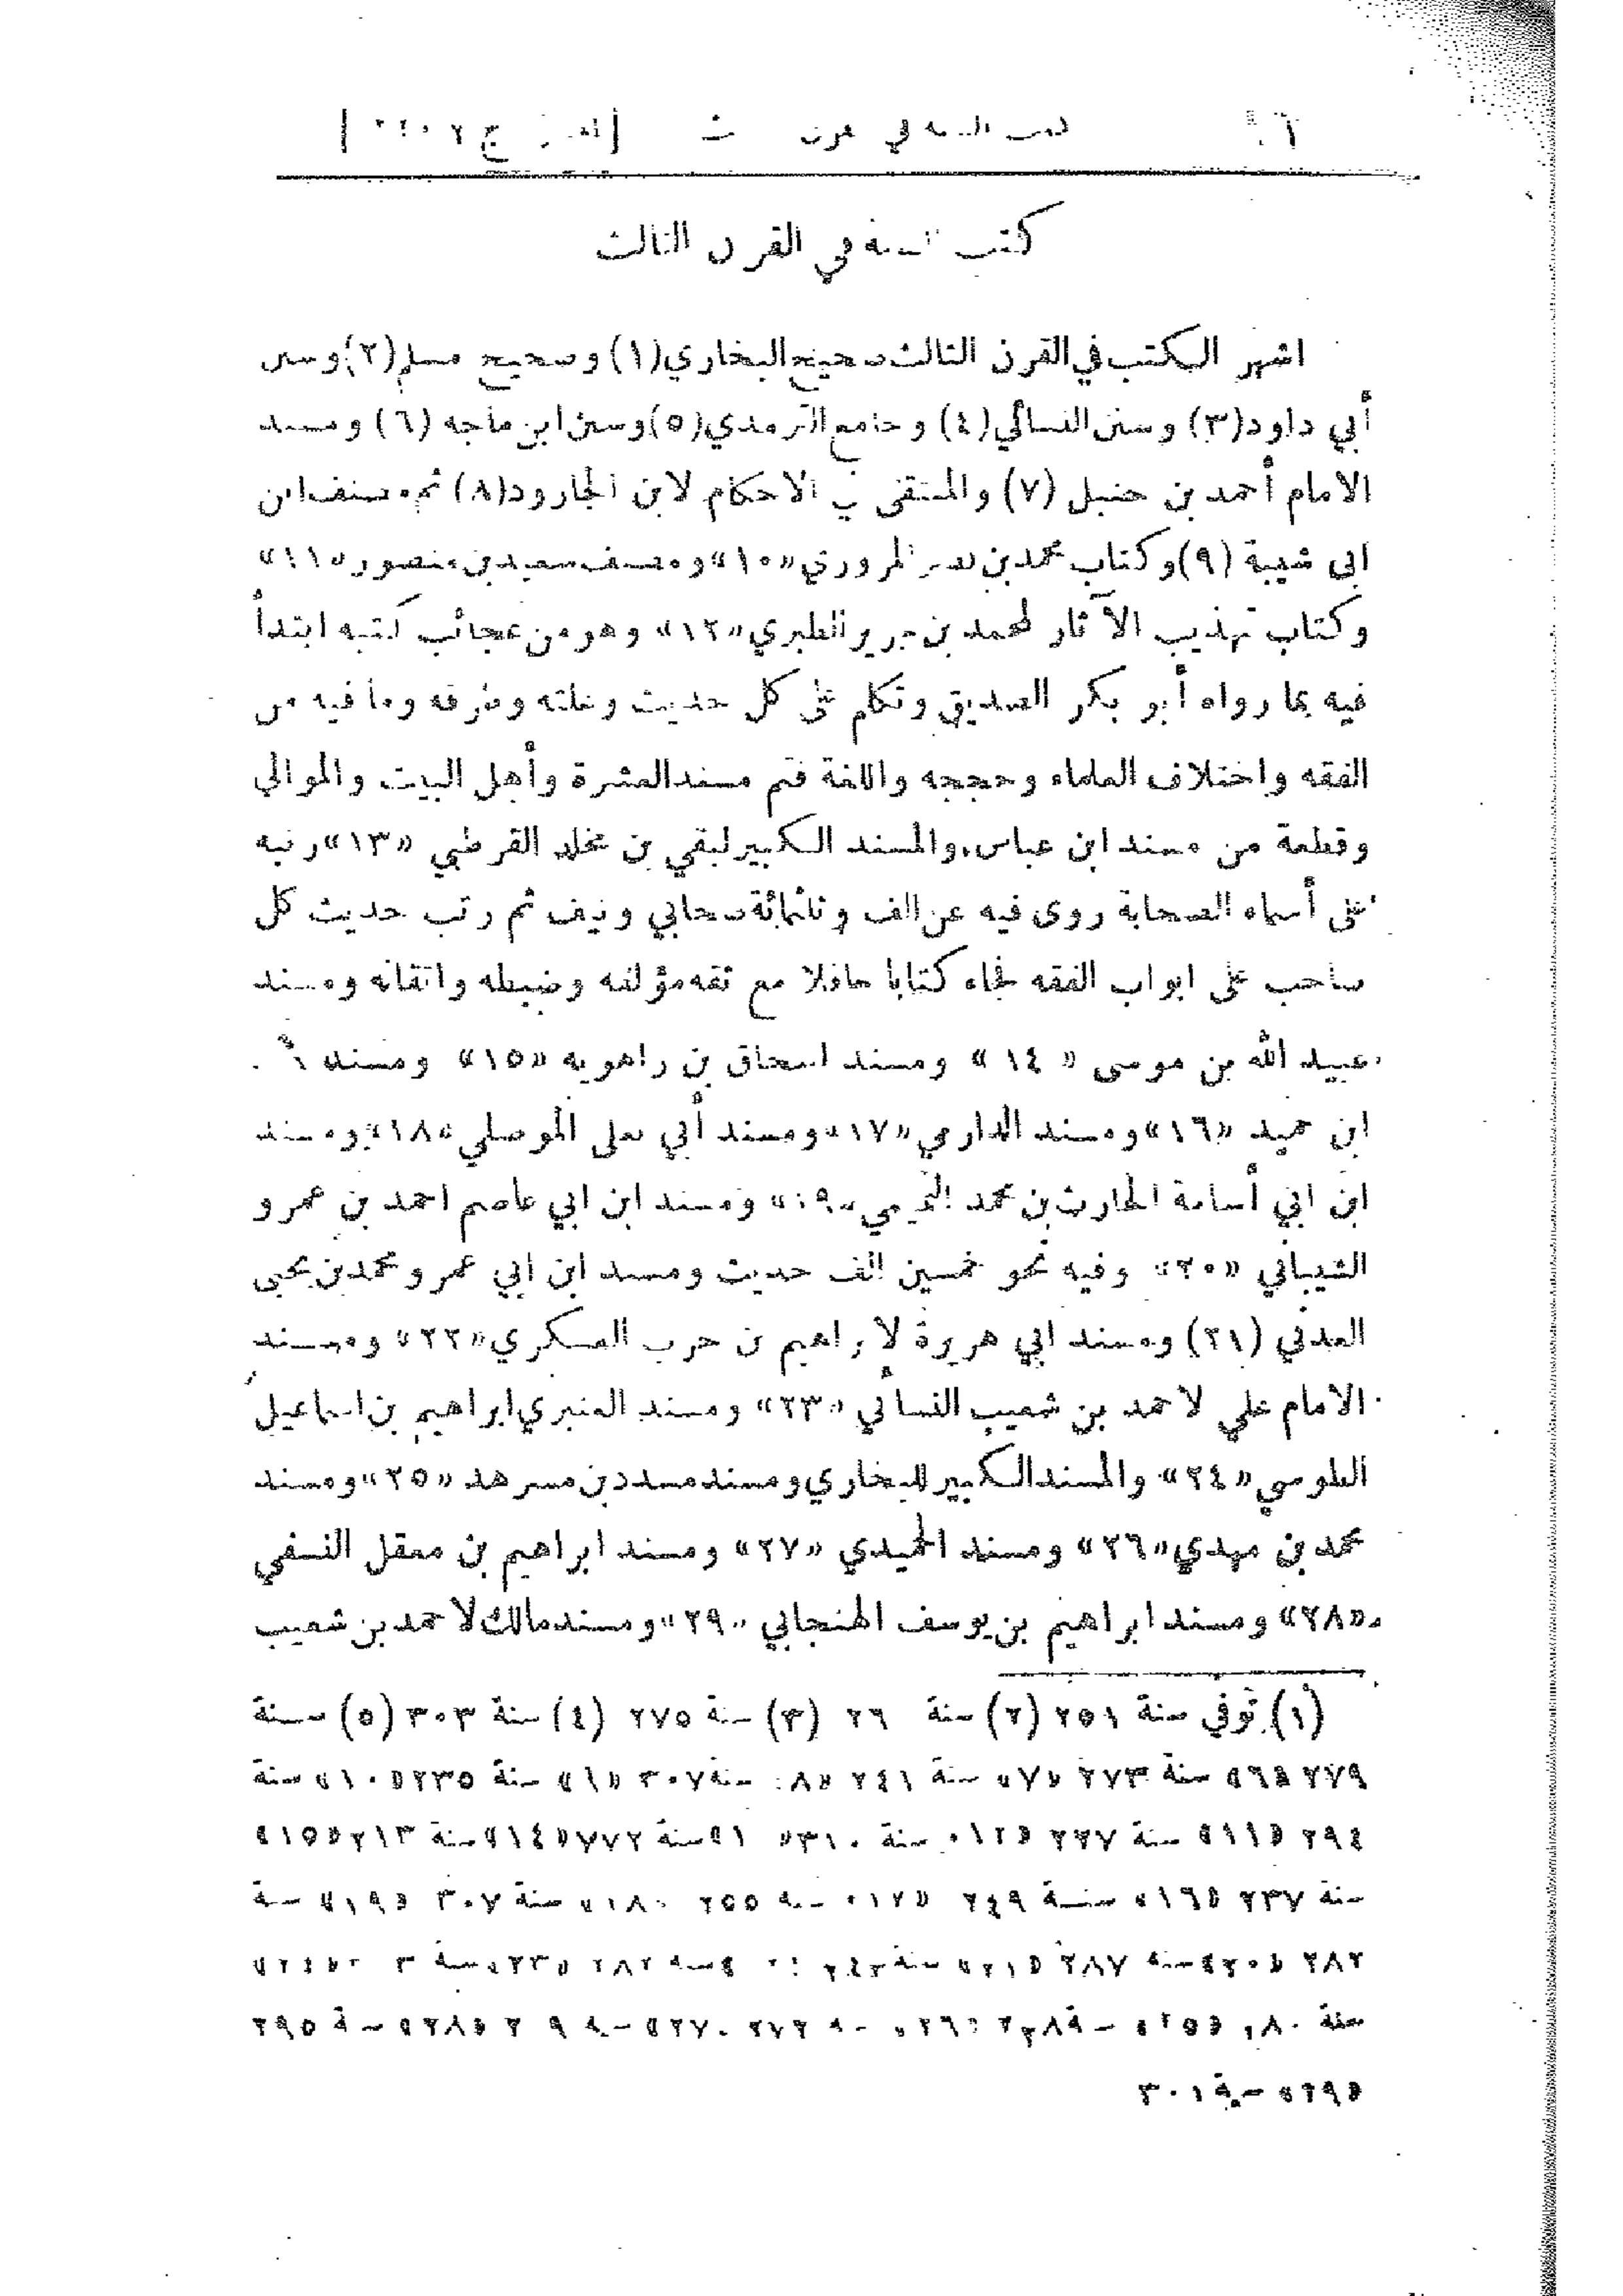 كتب السنة في القرن الثالث
اشهر الكتب في القرن الثالث صحيح البخاري (١) وصحيح مسلم (٢) وسنن
أبي داود (٣) وسنن النسائي (٤) وجامع الترمذي (٥) وسنن ابن ماجه (٦) ومسند
الامام أحمد بن حنبل (٧) والمنتقى في الاحكام لابن الجارود (٨) ثم مصنف ابن
ابي شيبة (٩) وكتاب محمد بن نصر المروزي «١٠» ومصنف سعيد بن منصور «١١»
وكتاب تهذيب الآثار لمحمد بن جرير الطبري «١٢» وهو من عجائب كتبه ابتدأ
فيه بما رواه أبو بكر الصديق وتكلم على كل حديث وعلته وطرقه وما فيه من
الفقه واختلاف العلماء وحججه واللغة فتم مسند العشرة وأهل البيت والموالي
وقطعة من مسند ابن عباس، والمسند الكبير لبقي بن مخلد القرطبي «١٣» رتبه
على أسماء الصحابة روى فيه عن الف وثلثمائة صحابي ونيف ثم رتب حديث كل
صاحب على ابواب الفقه فجاء كتابا حافلا مع ثقة مؤلفه وضبطه واتقانه ومسند
عبيد الله بن موسى « ١٤ » ومسند اسحاق بن راهويه «١٥» ومسند
ابن حميد «١٦» ومسند الدارمي «١٧» ومسند أبي يعلى الموصلي «١٨» ومسند
ابن ابي أسامة الحارث بن محمد التميمي «١٩» ومسند ابن ابي عاصم احمد بن عمرو
الشيباني «٢٠» وفيه نحو خمسين الف حديث ومسند ابن ابي عمرو محمد بن يحيى
العدني (٢١) ومسند ابي هريرة لابراهيم بن حرب العسكري «٢٢» ومسند
الامام علي لاحمد بن شعيب النسائي «٢٣» ومسند العنبري ابراهيم بن اسماعيل
الطوسي «٢٤» والمسند الكبير للبخاري ومسند مسدد بن مسرهد «٢٥» ومسند
محمد بن مهدي «٢٦» ومسند الحميدي «٢٧» ومسند ابراهيم بن معقل النسفي
«٢٨» ومسند ابراهيم بن يوسف الهنجابي «٢٩» ومسند مالك لاحمد بن شعيب
(١) توفي سنة ٢٥١ (٢) سنة ٢٦ (٣) سنة ٢٧٥ (٤) سنة ٣٠٣ (٥) سنة
٢٧٩ «٦» سنة ٢٧٣ «٧» سنة ٢٤١ «٨» سنة ٣٠٧ سنة ٢٣٥ «١٠» سنة
٢٩٤ «١١» سنة ٢٢٧ «١٢» سنة ٣١٠ سنة ٧٧٢ «١٤» سنة ٢١٣ «١٥»
سنة ٢٣٧ «١٦» سنة ٢٤٩ «١٧» سنة ٢٥٥ «١٨» سنة ٣٠٧ «١٩» سنة
٢٨٢ «٢٠» سنة ٢٨٧ «٢١» سنة ٢٤٣ سنة ٢٨٢ «٢٣» سنة ٣ «٢٤»
سنة «٢٥» سنة «٢٦» سنة ٢٧٢ «٢٧» سنة «٢٨» سنة ٢٩٥
«٢٩» سنة ٣٠١